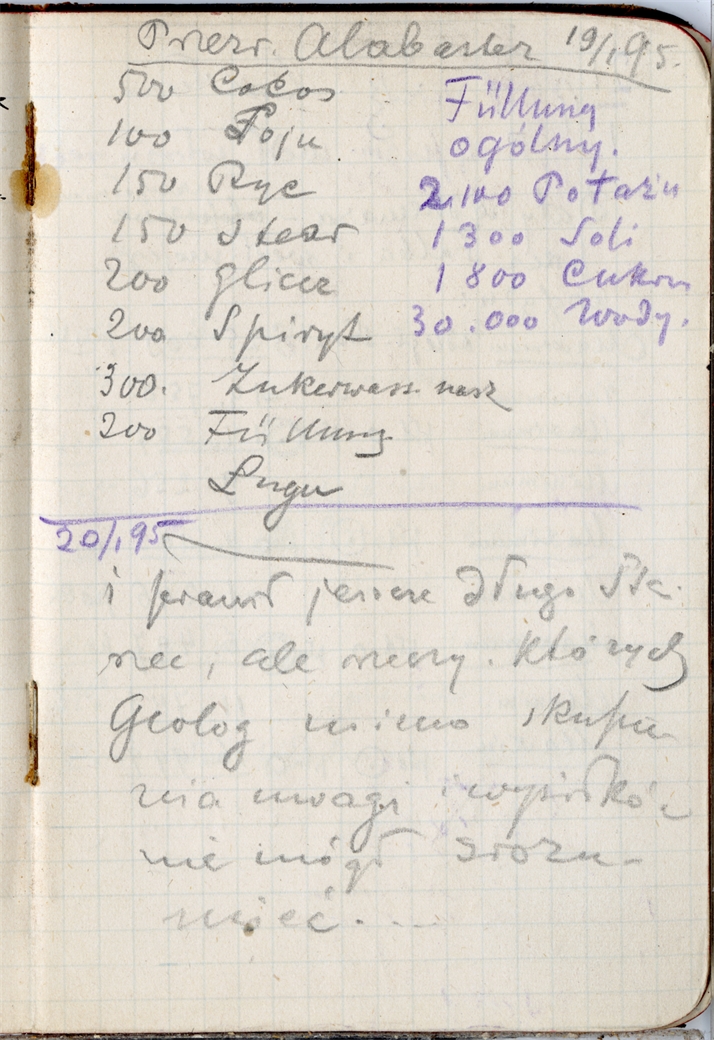 Przezr. Alabaster 19/I 95.
500 Cocos
100 Łoju
150 Ryc
150 Stear
200 glicer
200 Spiryt
300. Zukerwass. nasz
200 Füllung
Ługu
Füllung
ogólny.
2.100 Potażu
1300 Soli
1800 Cukru
30.000 Wody.
20/I 95
i prawił jeszcze długo Sta-
rzec, ale rzeczy, których
Geolog mimo skupie-
nia uwagi i wysiłków
nie mógł zrozu-
mieć...